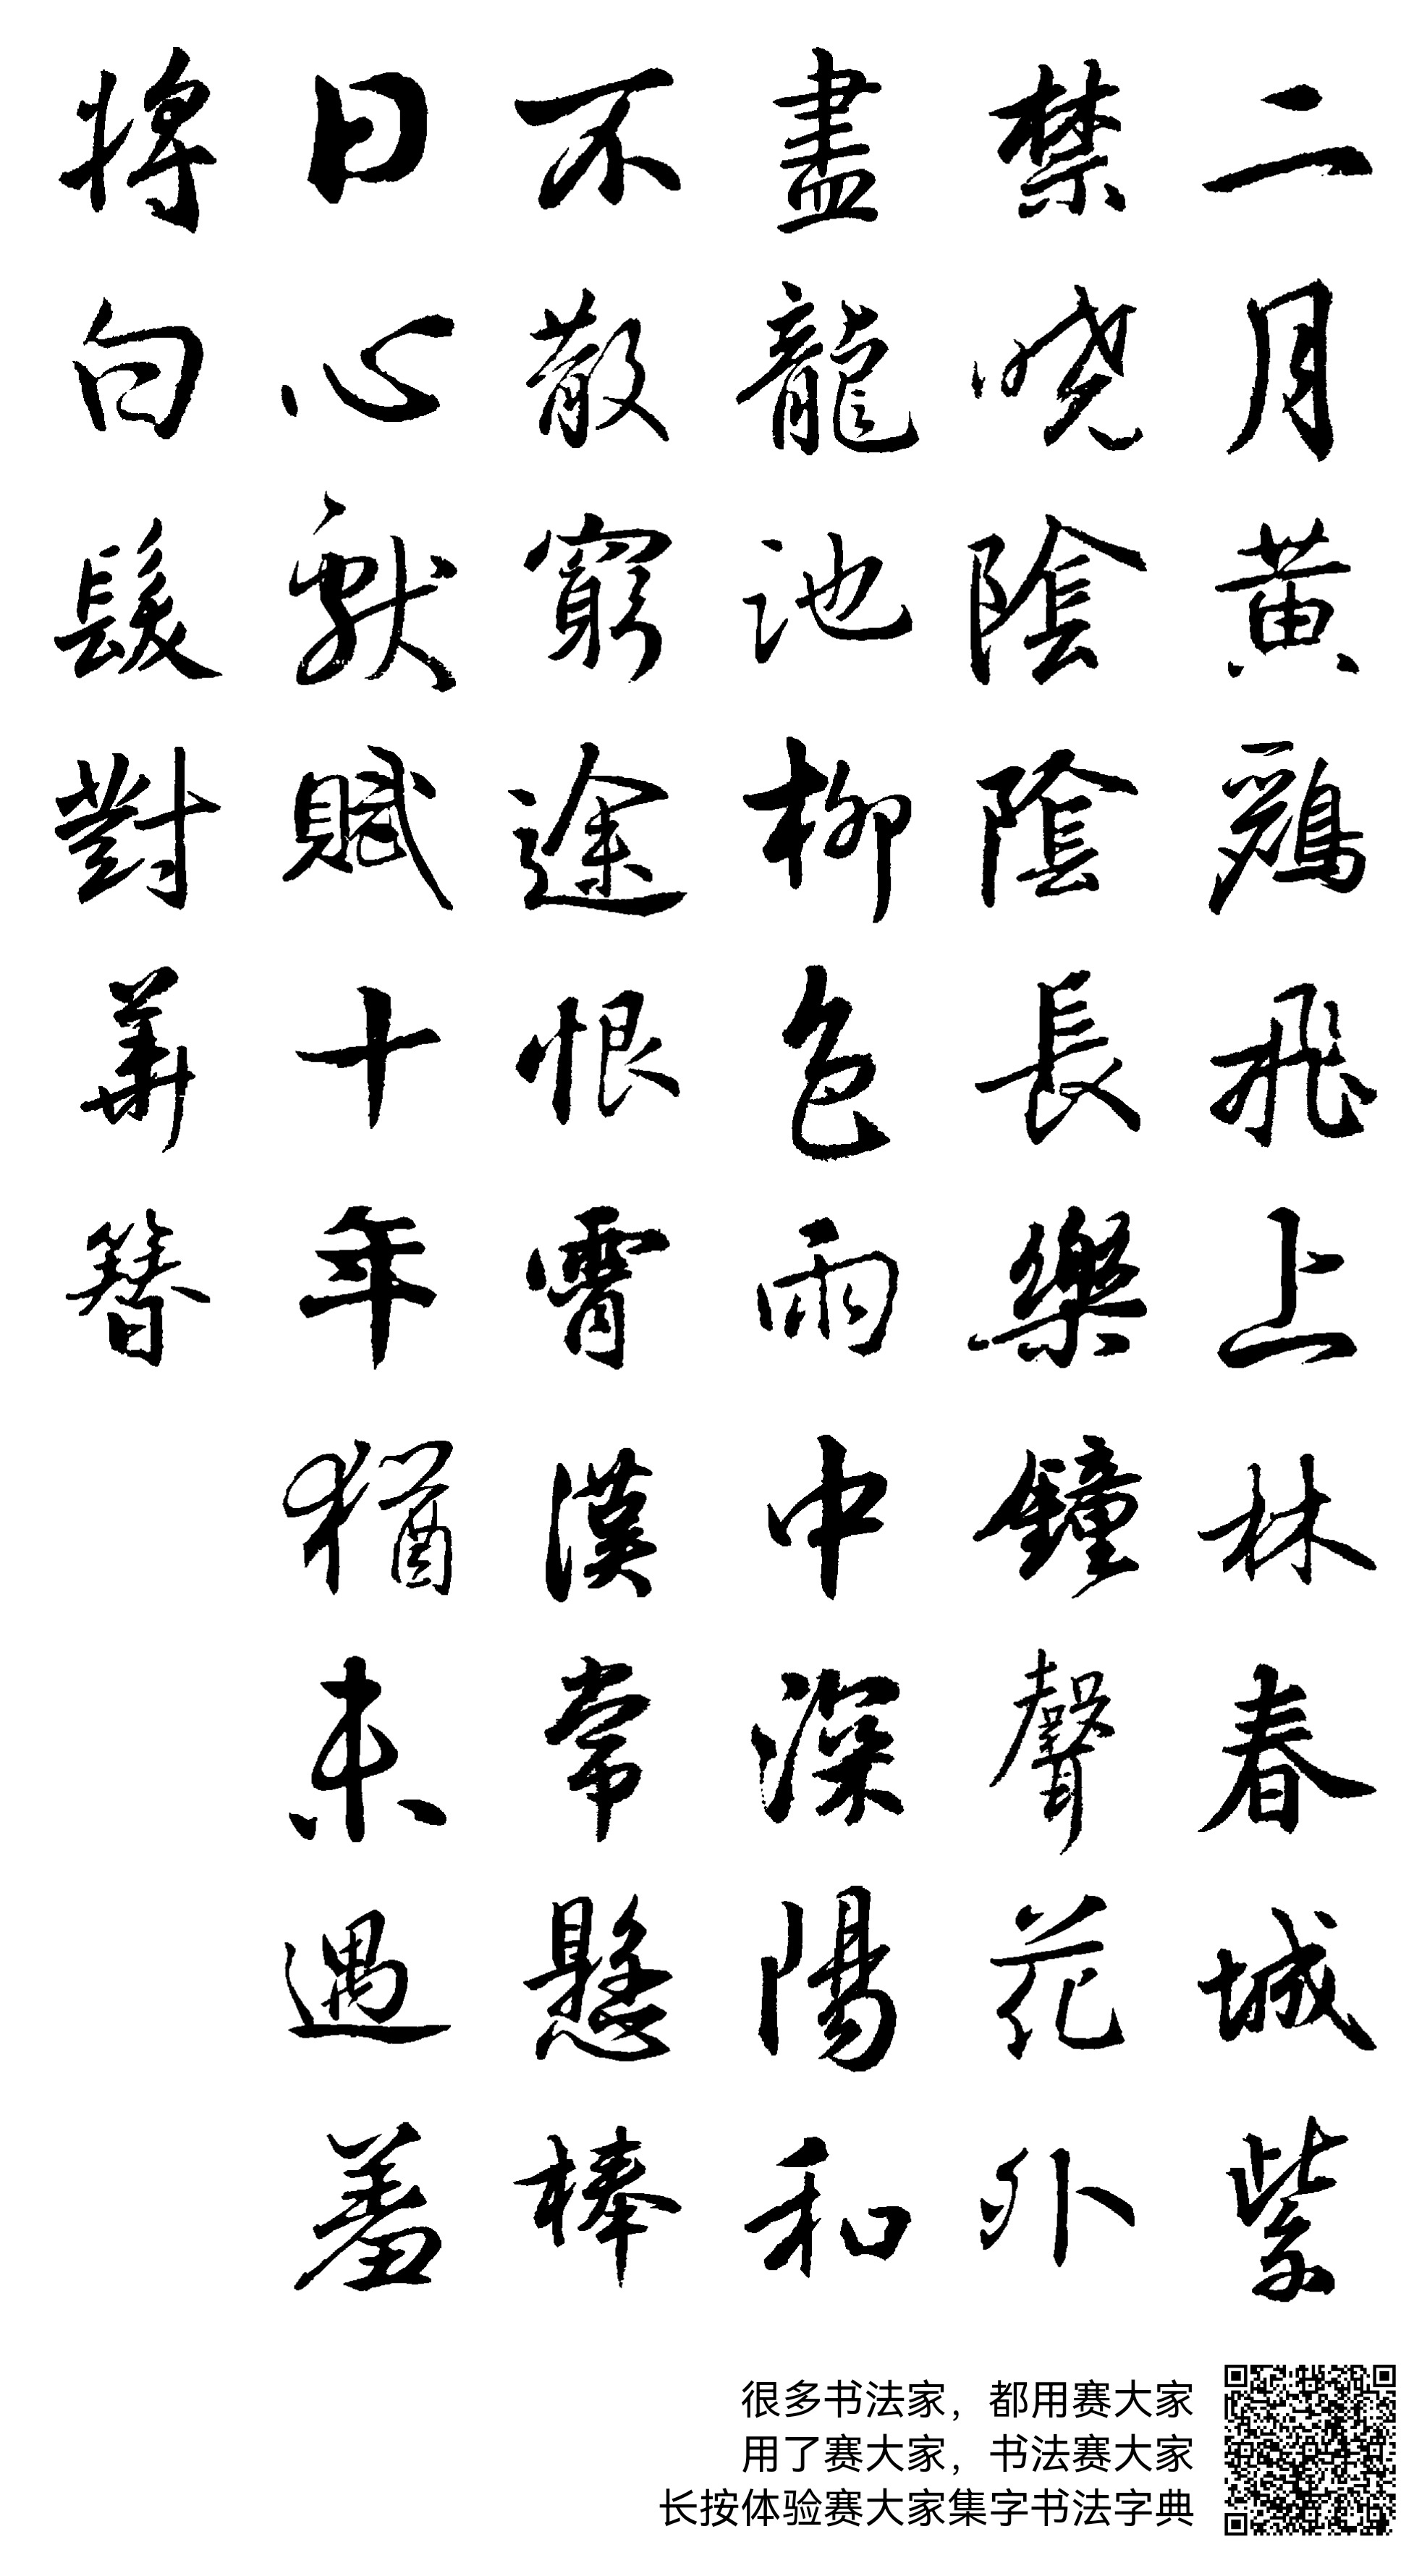 二月黄鸝飛上林春城紫
禁晓陰陰長樂鐘聲花外
盡龍池柳色雨中深陽和
不散窮途恨霄漢常懸棒
日心獻賦十年猶未遇羞
將白髮對華簪
很多书法家，都用赛大家
用了赛大家，书法赛大家
长按体验赛大家集字书法字典